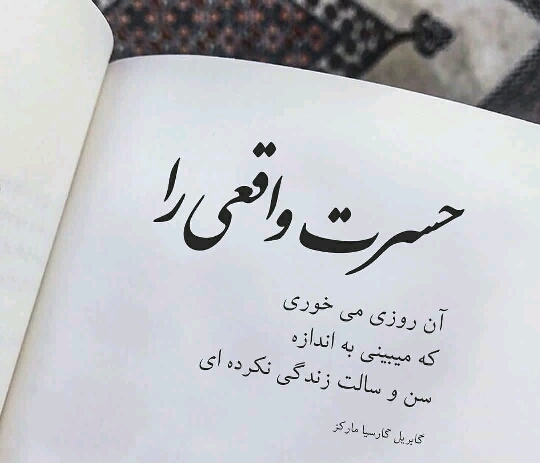 حسرت واقعی را
آن روزی می خوری
که میبینی به اندازه
سن و سالت زندگی نکرده ای
گابریل گارسیا مارکز